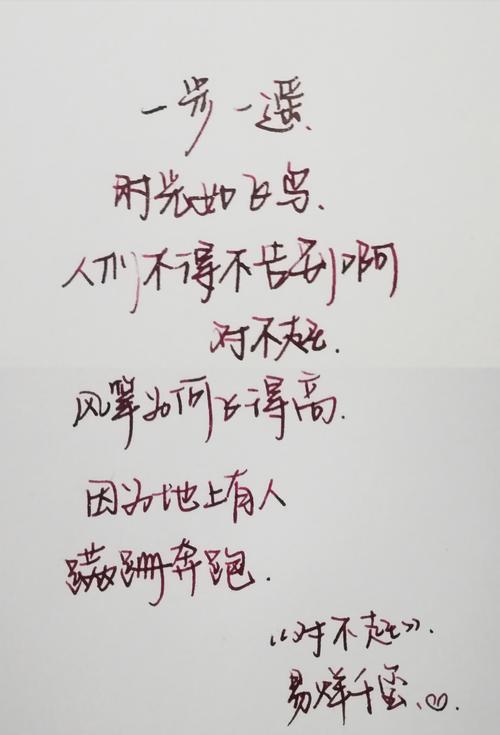 一步一遥、
时光如飞鸟、
人们不得不告别啊
对不起.
风筝为何飞得高.
因为地上有人
蹒跚奔跑.
《对不起》.
易烊千玺.♡.